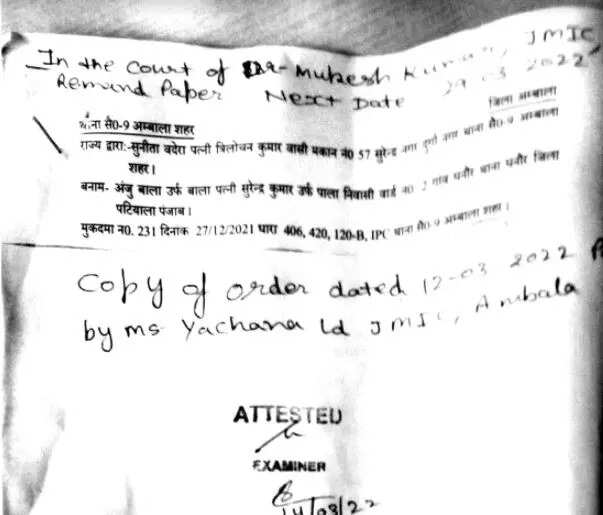 In the Court of Dr. Mukesh Kumar, JMIC
Remand Paper Next Date 29.03.2022
जिला अम्बाला
थाना सै0-9 अम्बाला शहर
राज्य द्वाराः-सुनीता वदेरा पत्नी त्रिलोचन कुमार वासी मकान न0 57 सुरेन्द्र नगर दुर्गा नगर थाना सै0-9 अम्बाला
शहर।
बनाम- अंजु बाला उर्फ बाला पत्नी सुरेन्द्र कुमार उर्फ पाला निवासी वार्ड न0 2 गांव घनौर थाना घनौर जिला
पटियाला पंजाब।
मुकदमा न0. 231 दिनांक 27/12/2021 धारा 406, 420, 120-B, IPC थाना सै0-9 अम्बाला शहर।
Copy of order dated 12-03 2022
by ms Yachana ld JMIC, Ambala
ATTESTED
EXAMINER
14/03/22